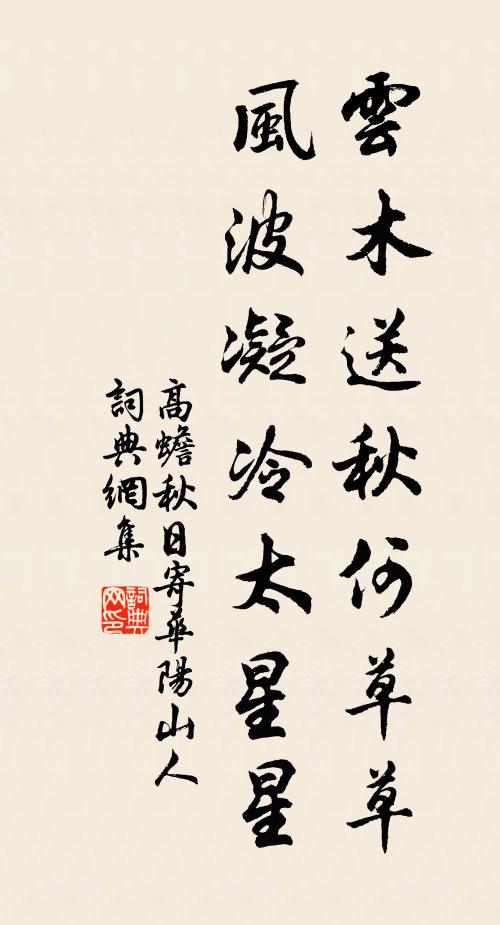 雲木送秋何草草
風波凝冷太星星
高蟾秋日寄華陽山人
詞典網集
詞典网印